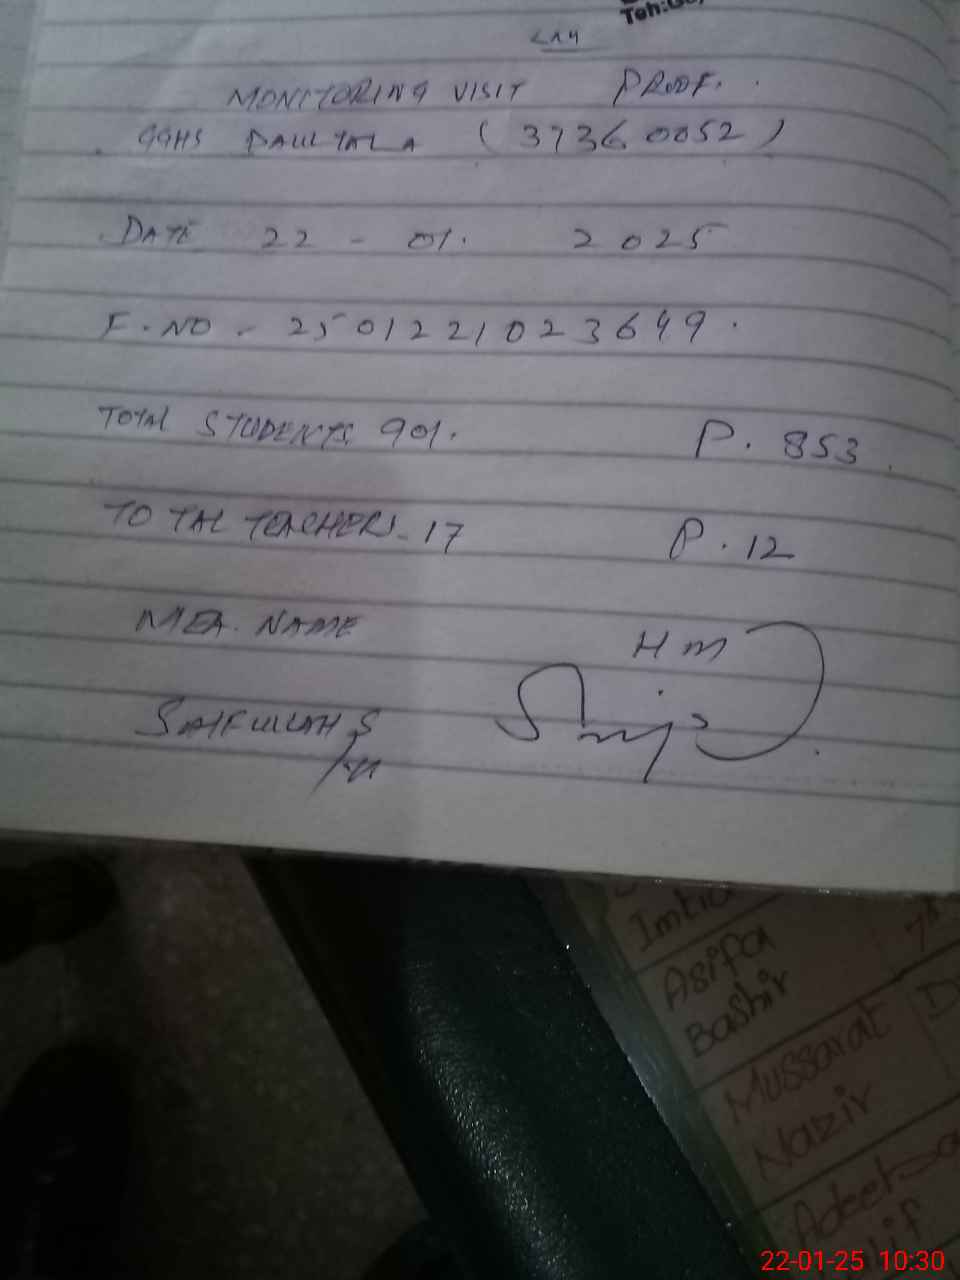 MONITORING VISIT PROOF.
GGHS DAULTALA (37360052)
DATE 22 - 01. 2025
F. NO - 250122102364 9.
TOTAL STUDENTS 901. P. 853.
TOTAL TEACHERS - 17 P. 12
MEA. NAME
HM
SAIFULLAH S
Imtia
Asifa
Bashir
7th
Mussarat
Nazir
D
Adeel
if
22-01-25 10:30